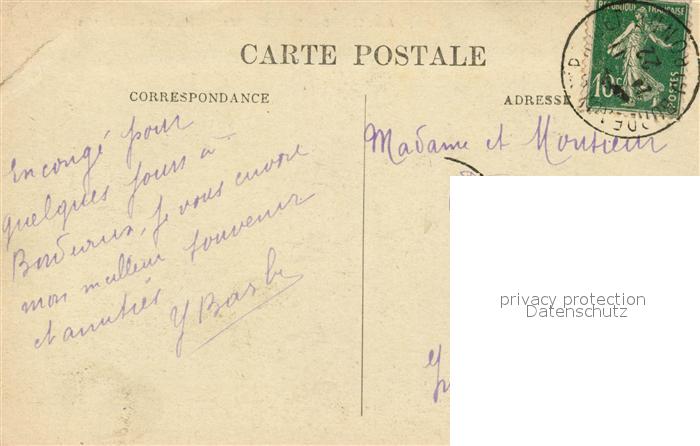 CARTE POSTALE
RÉPUBLIQUE FRANÇAISE
10c
POSTES
CORRESPONDANCE
ADRESSE
En congé pour
quelques jours à
Bordeaux, je vous envoie
mon meilleur souvenir
et amitiés
Y Barbe
Madame et Monsieur
privacy protection
Datenschutz